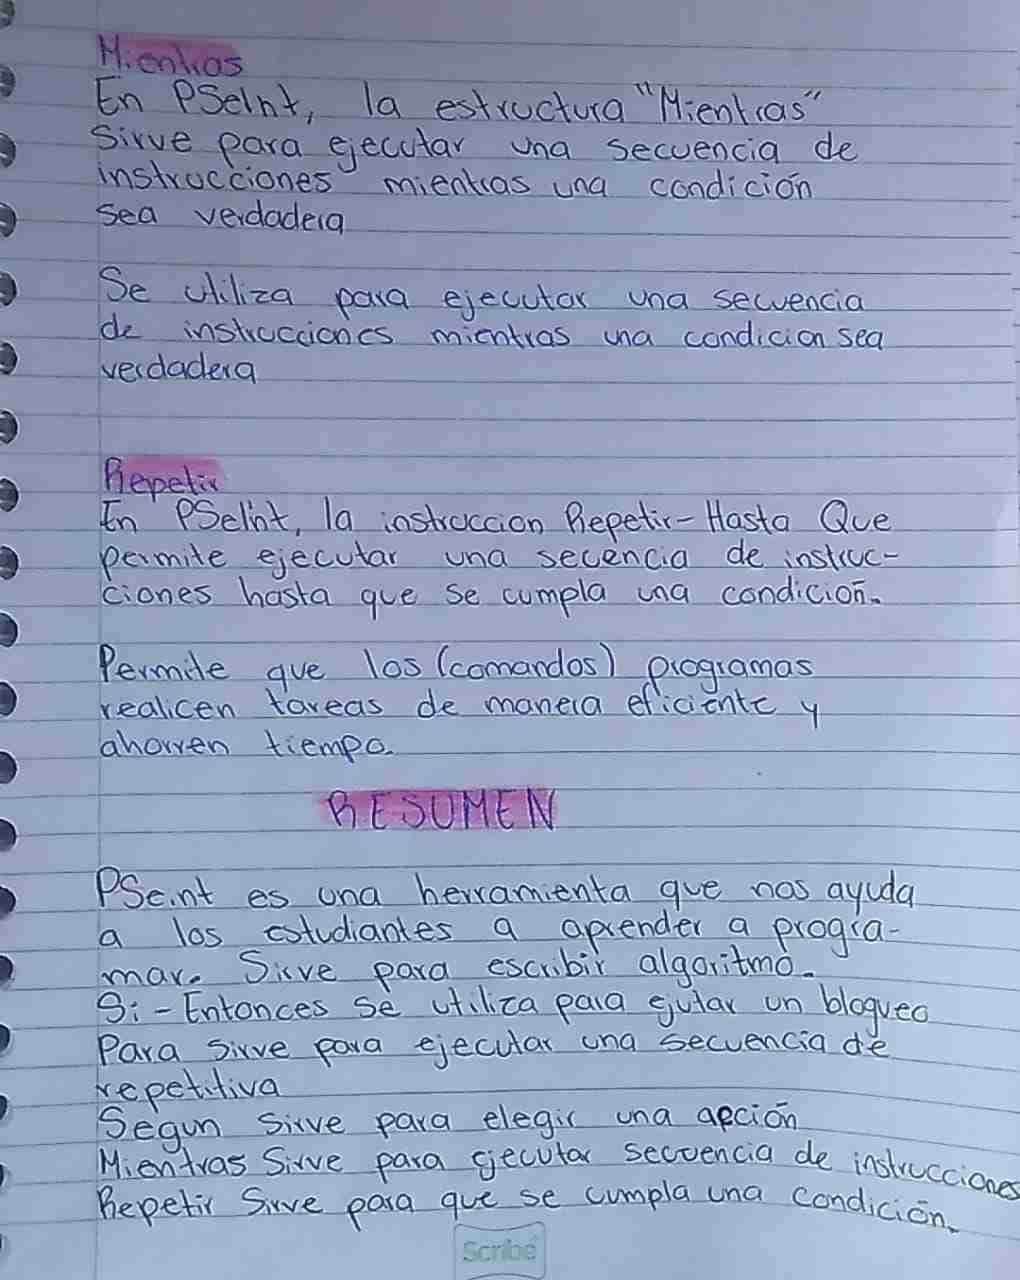 Mientras
En PSeInt, la estructura "Mientras"
Sirve para ejecutar una secuencia de
instrucciones mientras una condición
sea verdadera
Se utiliza para ejecutar una secuencia
de instrucciones mientras una condicion sea
verdadera
Repetir
En PSeInt, la instruccion Repetir-Hasta Que
permite ejecutar una secencia de instruc-
ciones hasta que se cumpla una condición.
Permite que los (comandos) programas
realicen tareas de manera eficiente y
ahorren tiempo.
RESUMEN
PSeint es una herramienta que nos ayuda
a los estudiantes a aprender a progra-
mar. Sirve para escribir algoritmo.
Si-Entonces se utiliza para ejutar un bloqueo
Para sirve para ejecutar una secuencia de
repetitiva
Segun sirve para elegir una acción
Mientras Sirve para ejecutar secuencia de instrucciones
Repetir Sirve para que se cumpla una condición.
Scribe